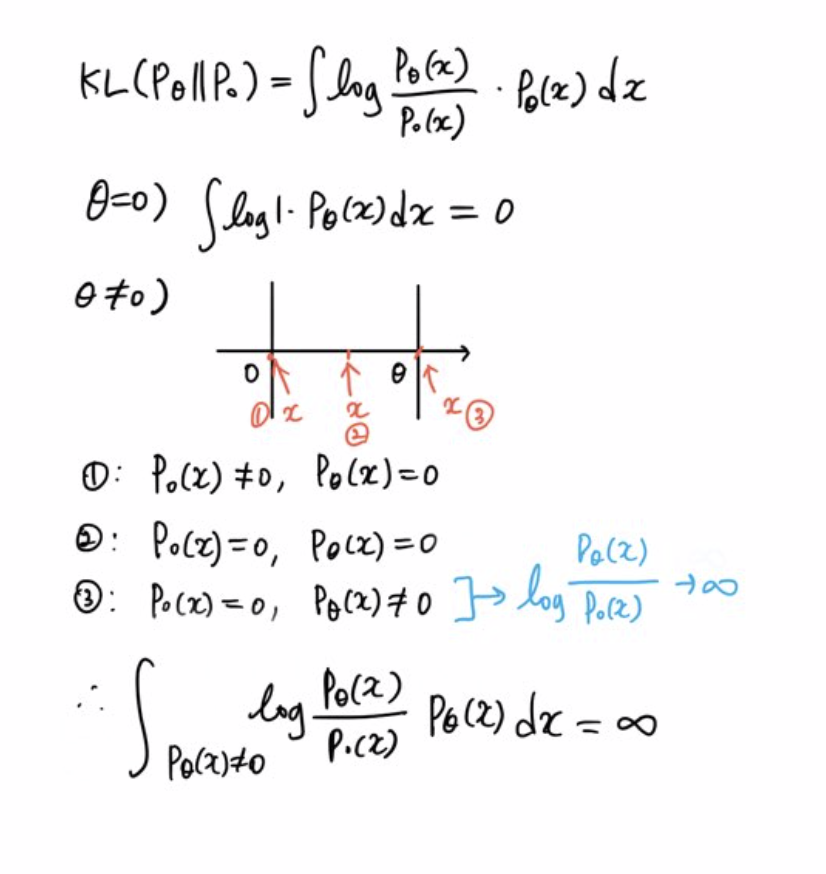 KL(Pθ||P₀) = ∫ log Pθ(x)/P₀(x) · Pθ(x) dx
θ=0) ∫ log 1 · Pθ(x) dx = 0
θ≠0)
0 θ
① x x ② x ③
①: P₀(x) ≠ 0, Pθ(x) = 0
②: P₀(x) = 0, Pθ(x) = 0
③: P₀(x) = 0, Pθ(x) ≠ 0 ]→ log Pθ(x)/P₀(x) → ∞
∴ ∫_{Pθ(x)≠0} log Pθ(x)/P₀(x) Pθ(x) dx = ∞